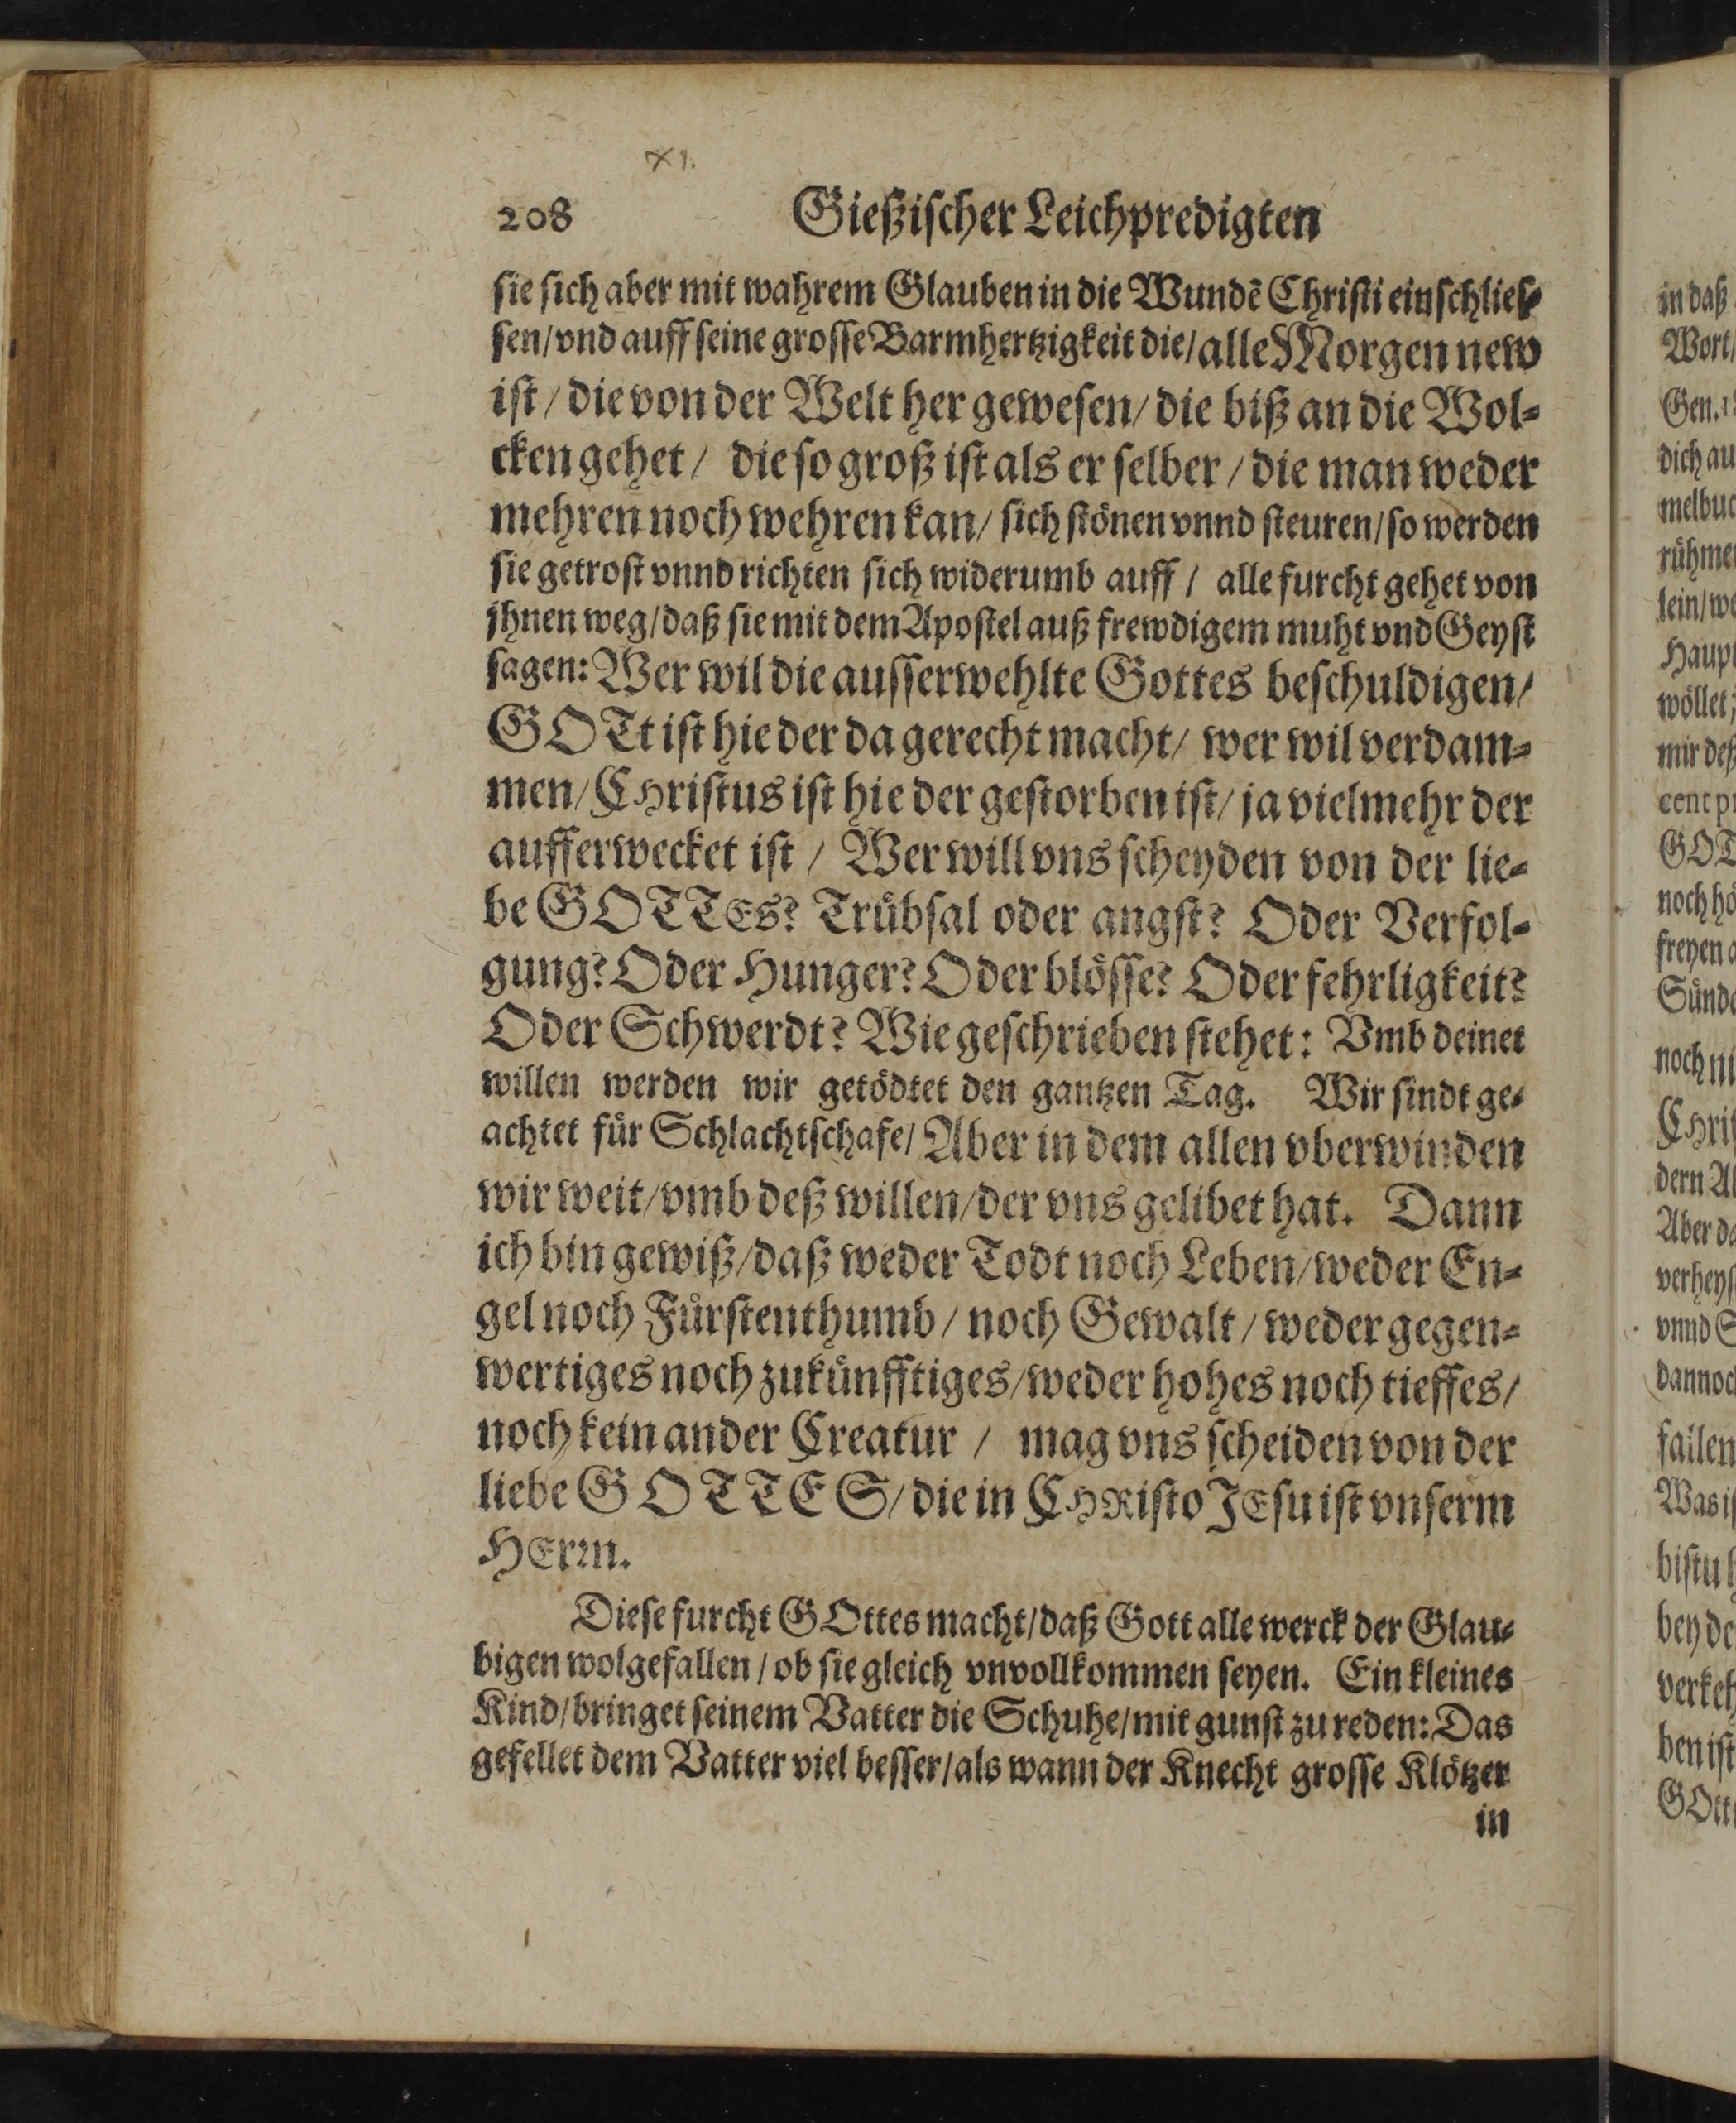 X1.
208 Gießiſcher Leichpredigten
ſie ſich aber mit wahrem Glauben in die Wundẽ Chriſti einſchlieſ-
ſen/ vnd auff ſeine groſſe Barmhertzigkeit die/ alle Morgen new
iſt / die von der Welt her geweſen/ die biß an die Wol-
cken gehet / die ſo groß iſt als er ſelber / die man weder
mehren noch wehren kan/ ſich ſtönen vnnd ſteuren/ ſo werden
ſie getroſt vnnd richten ſich widerumb auff / alle furcht gehet von
jhnen weg/ daß ſie mit dem Apoſtel auß frewdigem muht vnd Geyſt
ſagen: Wer wil die auſſerwehlte Gottes beſchuldigen/
GOTt iſt hie der da gerecht macht/ wer wil verdam-
men/ CHriſtus iſt hie der geſtorben iſt/ ja vielmehr der
aufferwecket iſt / Wer will vns ſcheyden von der lie-
be GOTTEs? Trübſal oder angſt? Oder Verfol-
gung? Oder Hunger? Oder blöſſe? Oder fehrligkeit?
Oder Schwerdt? Wie geſchrieben ſtehet: Vmb deinet
willen werden wir getödtet den gantzen Tag. Wir ſindt ge-
achtet für Schlachtſchafe/ Aber in dem allen vberwinden
wir weit/ vmb deß willen/ der vns gelibet hat. Dann
ich bin gewiß/ daß weder Todt noch Leben/ weder En-
gel noch Fürſtenthumb / noch Gewalt / weder gegen-
wertiges noch zukünfftiges/ weder hohes noch tieffes/
noch kein ander Creatur / mag vns ſcheiden von der
liebe GOTTES/ die in CHRiſto JEſu iſt vnſerm
HErꝛn.
Dieſe furcht GOttes macht/ daß Gott alle werck der Glau-
bigen wolgefallen / ob ſie gleich vnvollkommen ſeyen. Ein kleines
Kind/ bringet ſeinem Vatter die Schuhe/ mit gunſt zu reden: Das
gefellet dem Vatter viel beſſer/ als wann der Knecht groſſe Klötzer
in
in daß
Wort/
Gen. 18
dich au
melbuc
rühmen
lein/ we
Haupt
wöllet;
mir deß
cent pr
GOT
noch hö
freyen a
Sünde
noch ni
CHriſ
dern Al
Aber da
verheyſ
vnnd S
dannoch
fallen
Was iſ
biſtu h
bey de
verkeh
ben iſt
GOtt